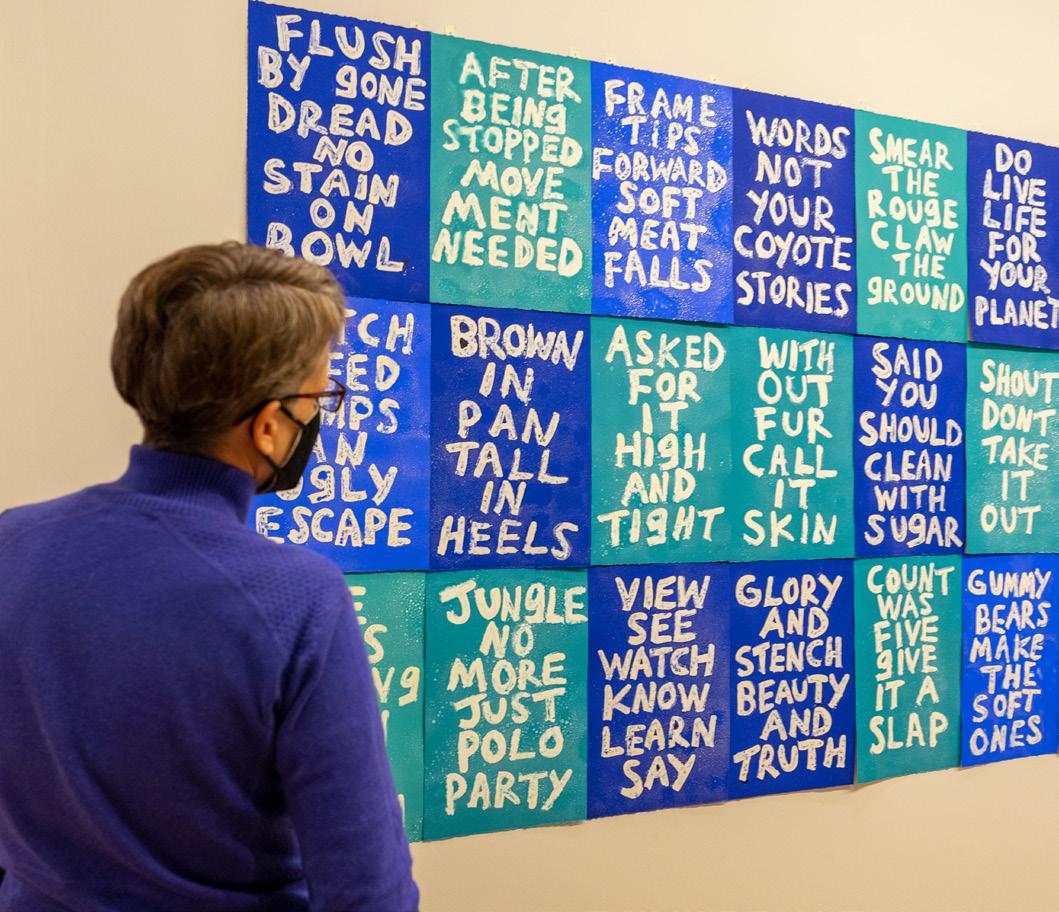 FLUSH
BY gONE
DREAD
NO
STAIN
ON
BOWL
AFTER
BEINg
STOPPED
MOVE
MENT
NEEDED
FRAME
TiPS
FORWARD
SOFT
MEAT
FALLS
WORDS
NOT
YOUR
COYOTE
STORIES
SMEAR
THE
ROUgE
CLAW
THE
gROUND
DO
LIVE
LIFE
FOR
YOUR
PLANET
ESCAPE
BROWN
IN
PAN
TALL
IN
HEELS
ASKED
FOR
IT
HIgH
AND
TIgHT
WITH
OUT
FUR
CALL
IT
SKIN
SAID
YOU
SHOULD
CLEAN
WITH
SUgAR
SHOUT
DONT
TAKE
IT
OUT
JUNgLE
NO
MORE
JUST
POLO
PARTY
VIEW
SEE
WATCH
KNOW
LEARN
SAY
GLORY
AND
STENCH
BEAUTY
AND
TRUTH
COUNT
WAS
FIVE
gIVE
IT A
SLAP
GUMMY
BEARS
MAKE
THE
SOFT
ONES